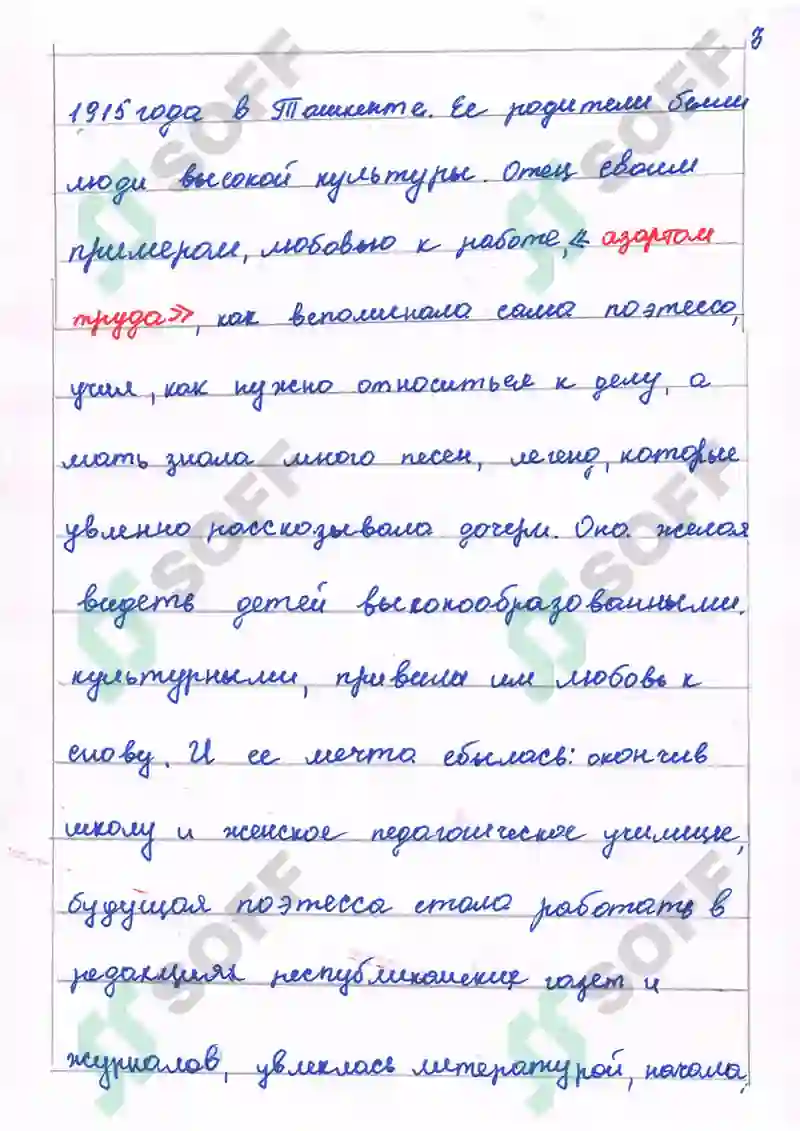 3
1915 года в Ташкенте. Ее родители были
люди высокой культуры. Отец своим
примером, любовью к работе, « азартом
труда», как вспоминала сама поэтесса,
учил, как нужно относиться к делу, а
мать знала много песен, легенд, которые
увленно рассказывала дочерм. Она желая
видеть детей высокообразованными.
культурными, привила им любовь к
слову. И ее мечта сбылась: окончив
школу и женское педагогическое училище,
будущая поэтесса стала работать в
редакциях республиканских газет и
журналов, увлеклась литературой, начала,
SOFF
SOFF
SOFF
SOFF
SOFF
SOFF